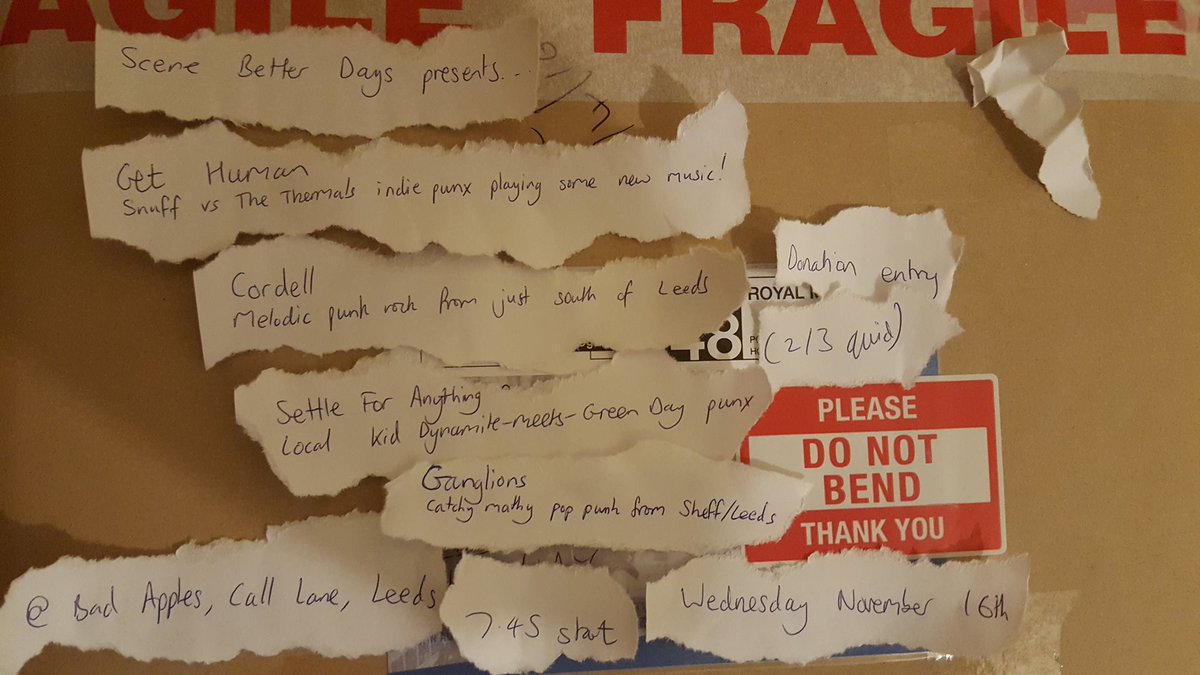 AGILE FRAGILE
Scene Better Days presents...
Get Human
Snuff vs The Thermals indie punx playing some new music!
Cordell
Melodic punk rock from just south of Leeds
Donation entry
(2/3 quid)
ROYAL M
Settle For Anything
Local Kid Dynamite-meets-Green Day punx
Ganglions
Catchy mathy pop punk from Sheff/Leeds
PLEASE
DO NOT
BEND
THANK YOU
@ Bad Apples, Call Lane, Leeds
7.45 start
Wednesday November 16th